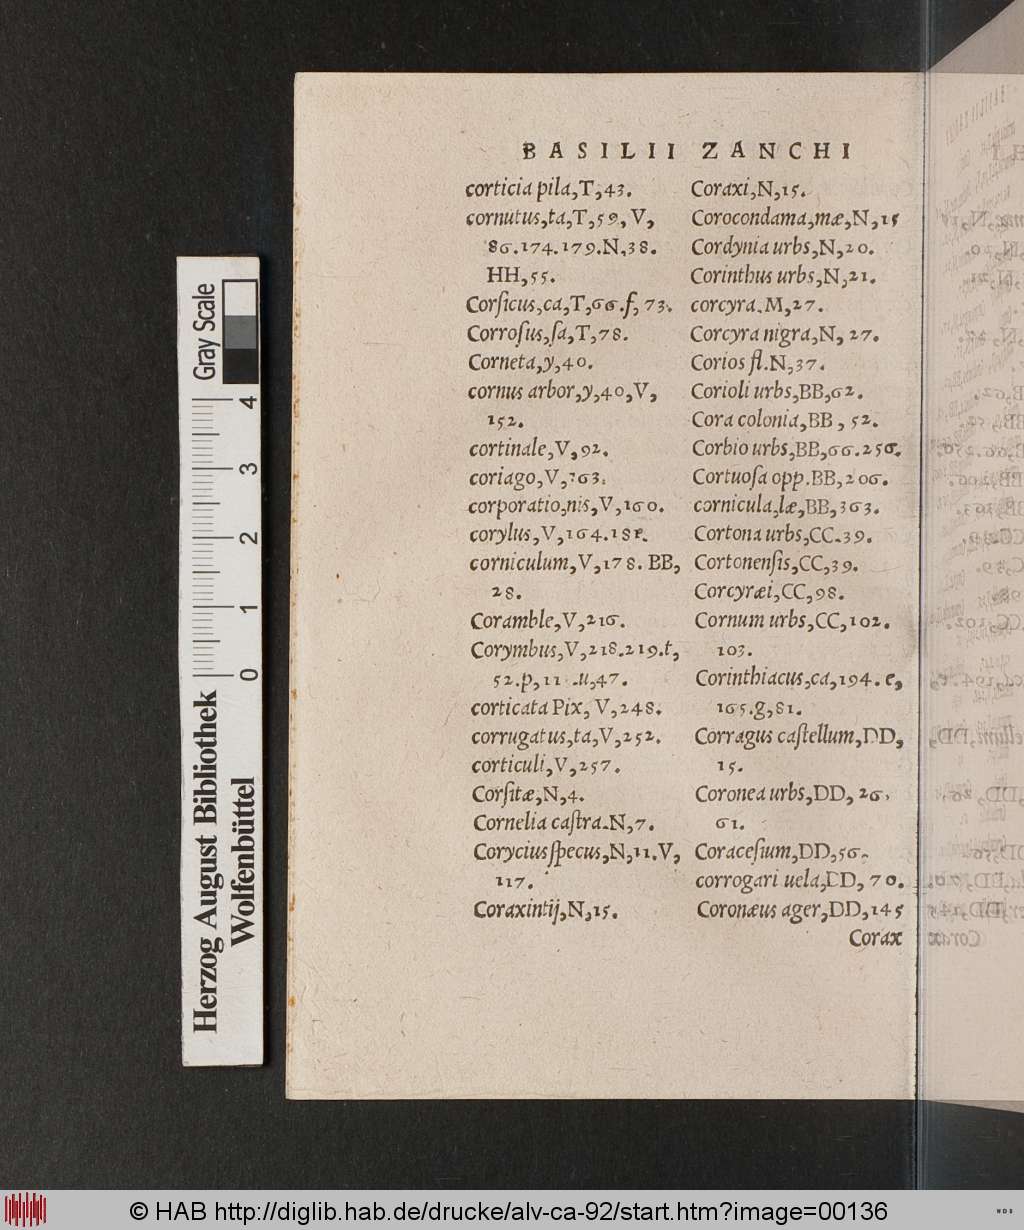 BASILII ZANCHI
corticia pila,T,43.
cornutus,ta,T,59,V,
86.174.179.N,38.
HH,55.
Corſicus,ca,T,66.f,73.
Corroſus,ſa,T,78.
Corneta,y,40.
cornus arbor,y,40,V,
152.
cortinale,V,92.
coriago,V,163.
corporatio,nis,V,160.
corylus,V,164.181.
corniculum,V,178. BB,
28.
Coramble,V,216.
Corymbus,V,218.219.t,
52.p,11 .u,47.
corticata Pix, V,248.
corrugatus,ta,V,252.
corticuli,V,257.
Corſitæ,N,4.
Cornelia caſtra.N,7.
Corycius ſpecus,N,11.V,
117.
Coraxintij,N,15.
Coraxi,N,15.
Corocondama,mæ,N,15
Cordynia urbs,N,20.
Corinthus urbs,N,21.
corcyra.M,27.
Corcyra nigra,N, 27.
Corios fl.N,37.
Corioli urbs,BB,62.
Cora colonia,BB, 52.
Corbio urbs,BB,66.256.
Cortuoſa opp.BB,206.
cornicula,læ,BB,363.
Cortona urbs,CC.39.
Cortonenſis,CC,39.
Corcyræi,CC,98.
Cornum urbs,CC,102.
103.
Corinthiacus,ca,194.e,
165.g,81.
Corragus caſtellum,DD,
15.
Coronea urbs,DD, 26,
61.
Coraceſium,DD,56.
corrogari uela,DD, 70.
Coronæus ager,DD,145
Corax
Gray Scale
4
3
2
1
0
Herzog August Bibliothek
Wolfenbüttel
© HAB http://diglib.hab.de/drucke/alv-ca-92/start.htm?image=00136